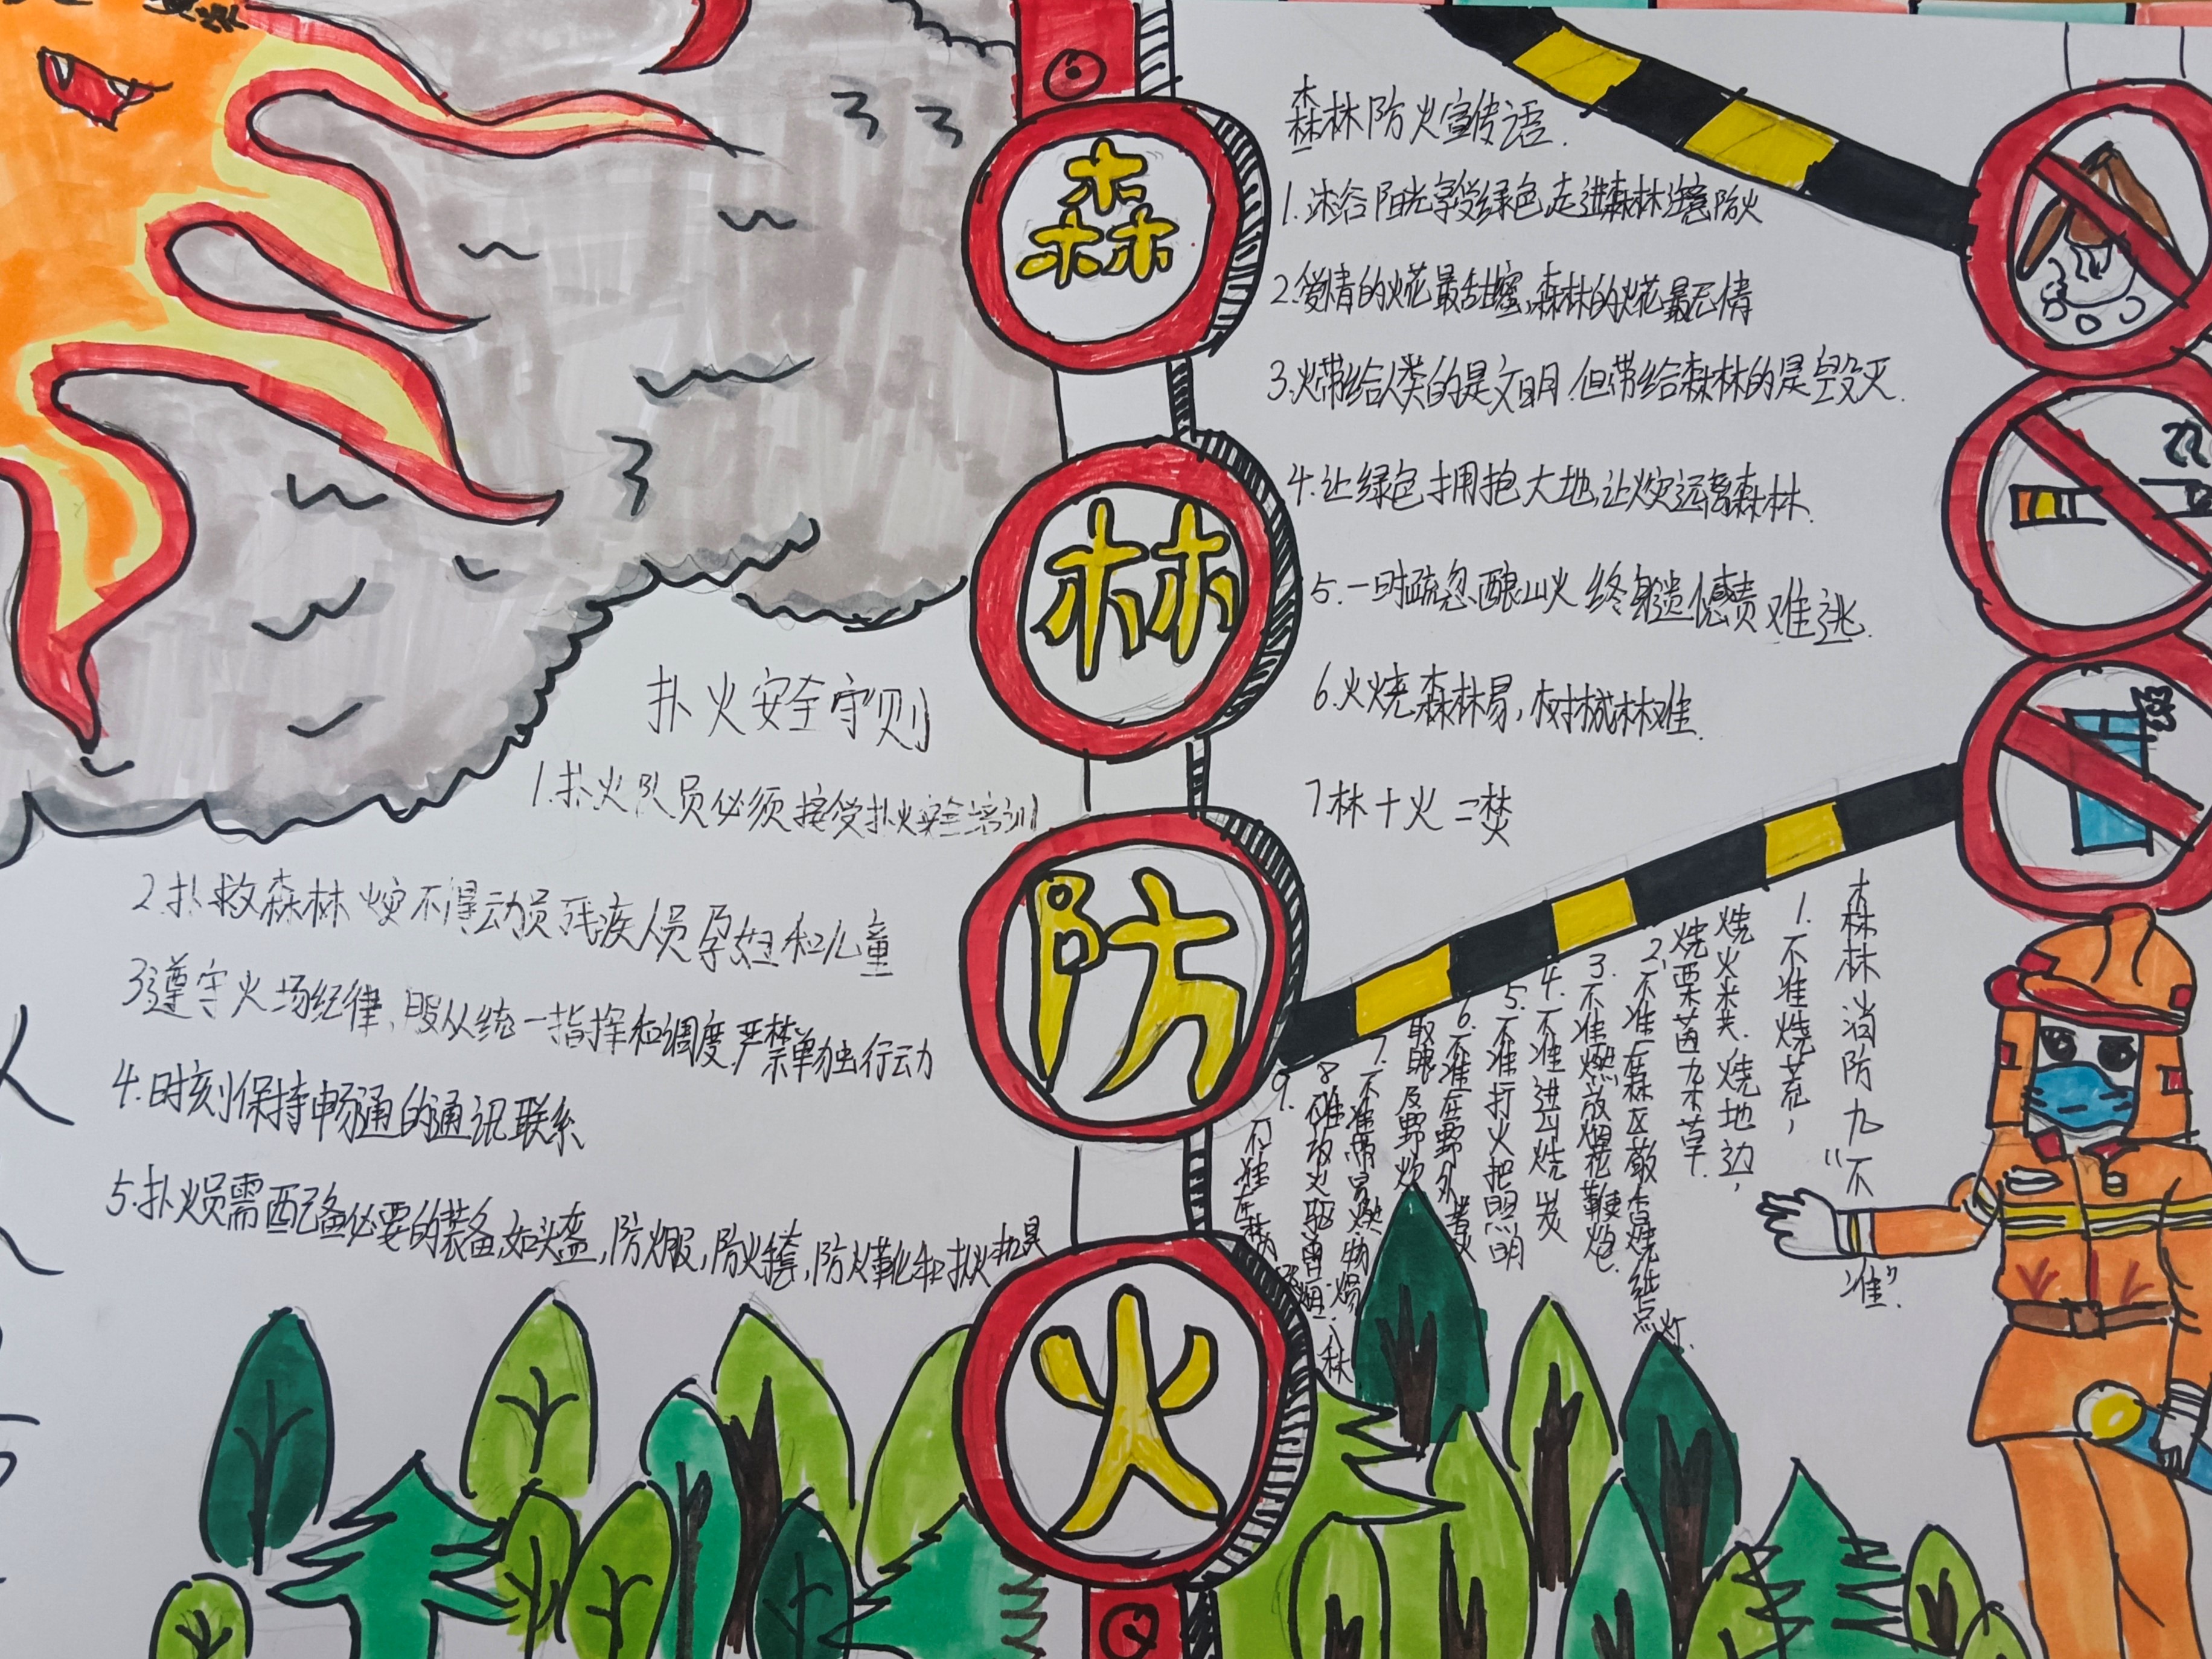 森
林
防
火
森林防火宣传语.
1.沐浴阳光享受绿色,走进森林注意防火
2.爱情的火花最甜蜜,森林的火花最无情
3.火带给人类的是文明.但带给森林的是毁灭.
4.让绿色拥抱大地,让火灾远离森林.
5.一时疏忽酿山火 终身遗憾责难逃.
6.火烧森林易,树木成林难.
7林十火二焚
扑火安全守则
1.扑火队员必须接受扑火安全培训
2.扑救森林火灾不得动员残疾人员孕妇和儿童
3遵守火场纪律、服从统一指挥和调度严禁单独行动
4.时刻保持畅通的通讯联系
5.扑火员需配备必要的装备,如头盔,防火服,防火手套,防火靴和扑火机具
森林消防九“不
准”.
1.不准烧荒,
烧火粪.烧地边,
烧栗茵九木草.
2.不准在森区敬香烧纸点灯.
3.不准燃放烟花鞭炮.
4.不准进山烧炭
5.不准打火把照明
6.不准在野外
取暖及野炊
7.不准带易燃物
9.不准在林